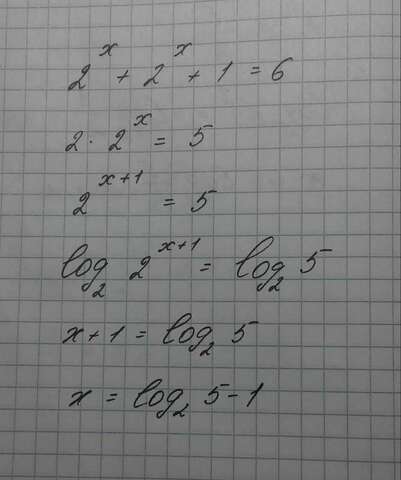 2^x + 2^x + 1 = 6
2 · 2^x = 5
2^{x+1} = 5
log_2 2^{x+1} = log_2 5
x + 1 = log_2 5
x = log_2 5 - 1